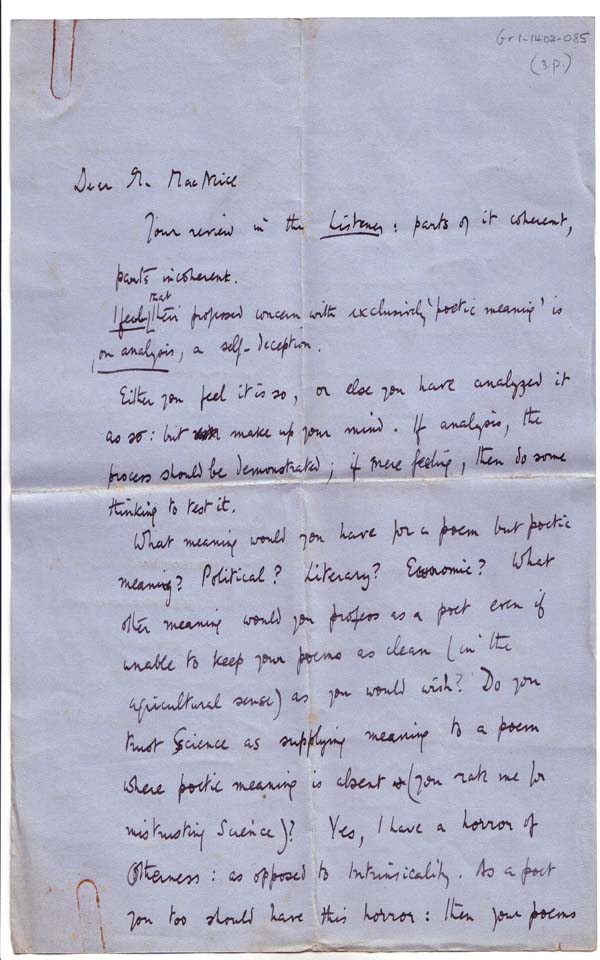 Gr1-1402-085
(3 p.)
Dear Mr. MacNeice
Your review in the Listener: parts of it coherent,
parts incoherent.
I feel that their professed concern with exclusively 'poetic meaning' is
, on analysis, a self-deception.
Either you feel it is so, or else you have analyzed it
as so: but make up your mind. If analysis, the
process should be demonstrated; if mere feeling, then do some
thinking to test it.
What meaning would you have for a poem but poetic
meaning? Political? Literary? Economic? What
other meaning would you profess as a poet even if
unable to keep your poems as clean (in the
agricultural sense) as you would wish? Do you
trust Science as supplying meaning to a poem
where poetic meaning is absent (you rate me for
mistrusting Science)? Yes, I have a horror of
Otherness: as opposed to Intrinsicality. As a poet
you too should have this horror: then your poems